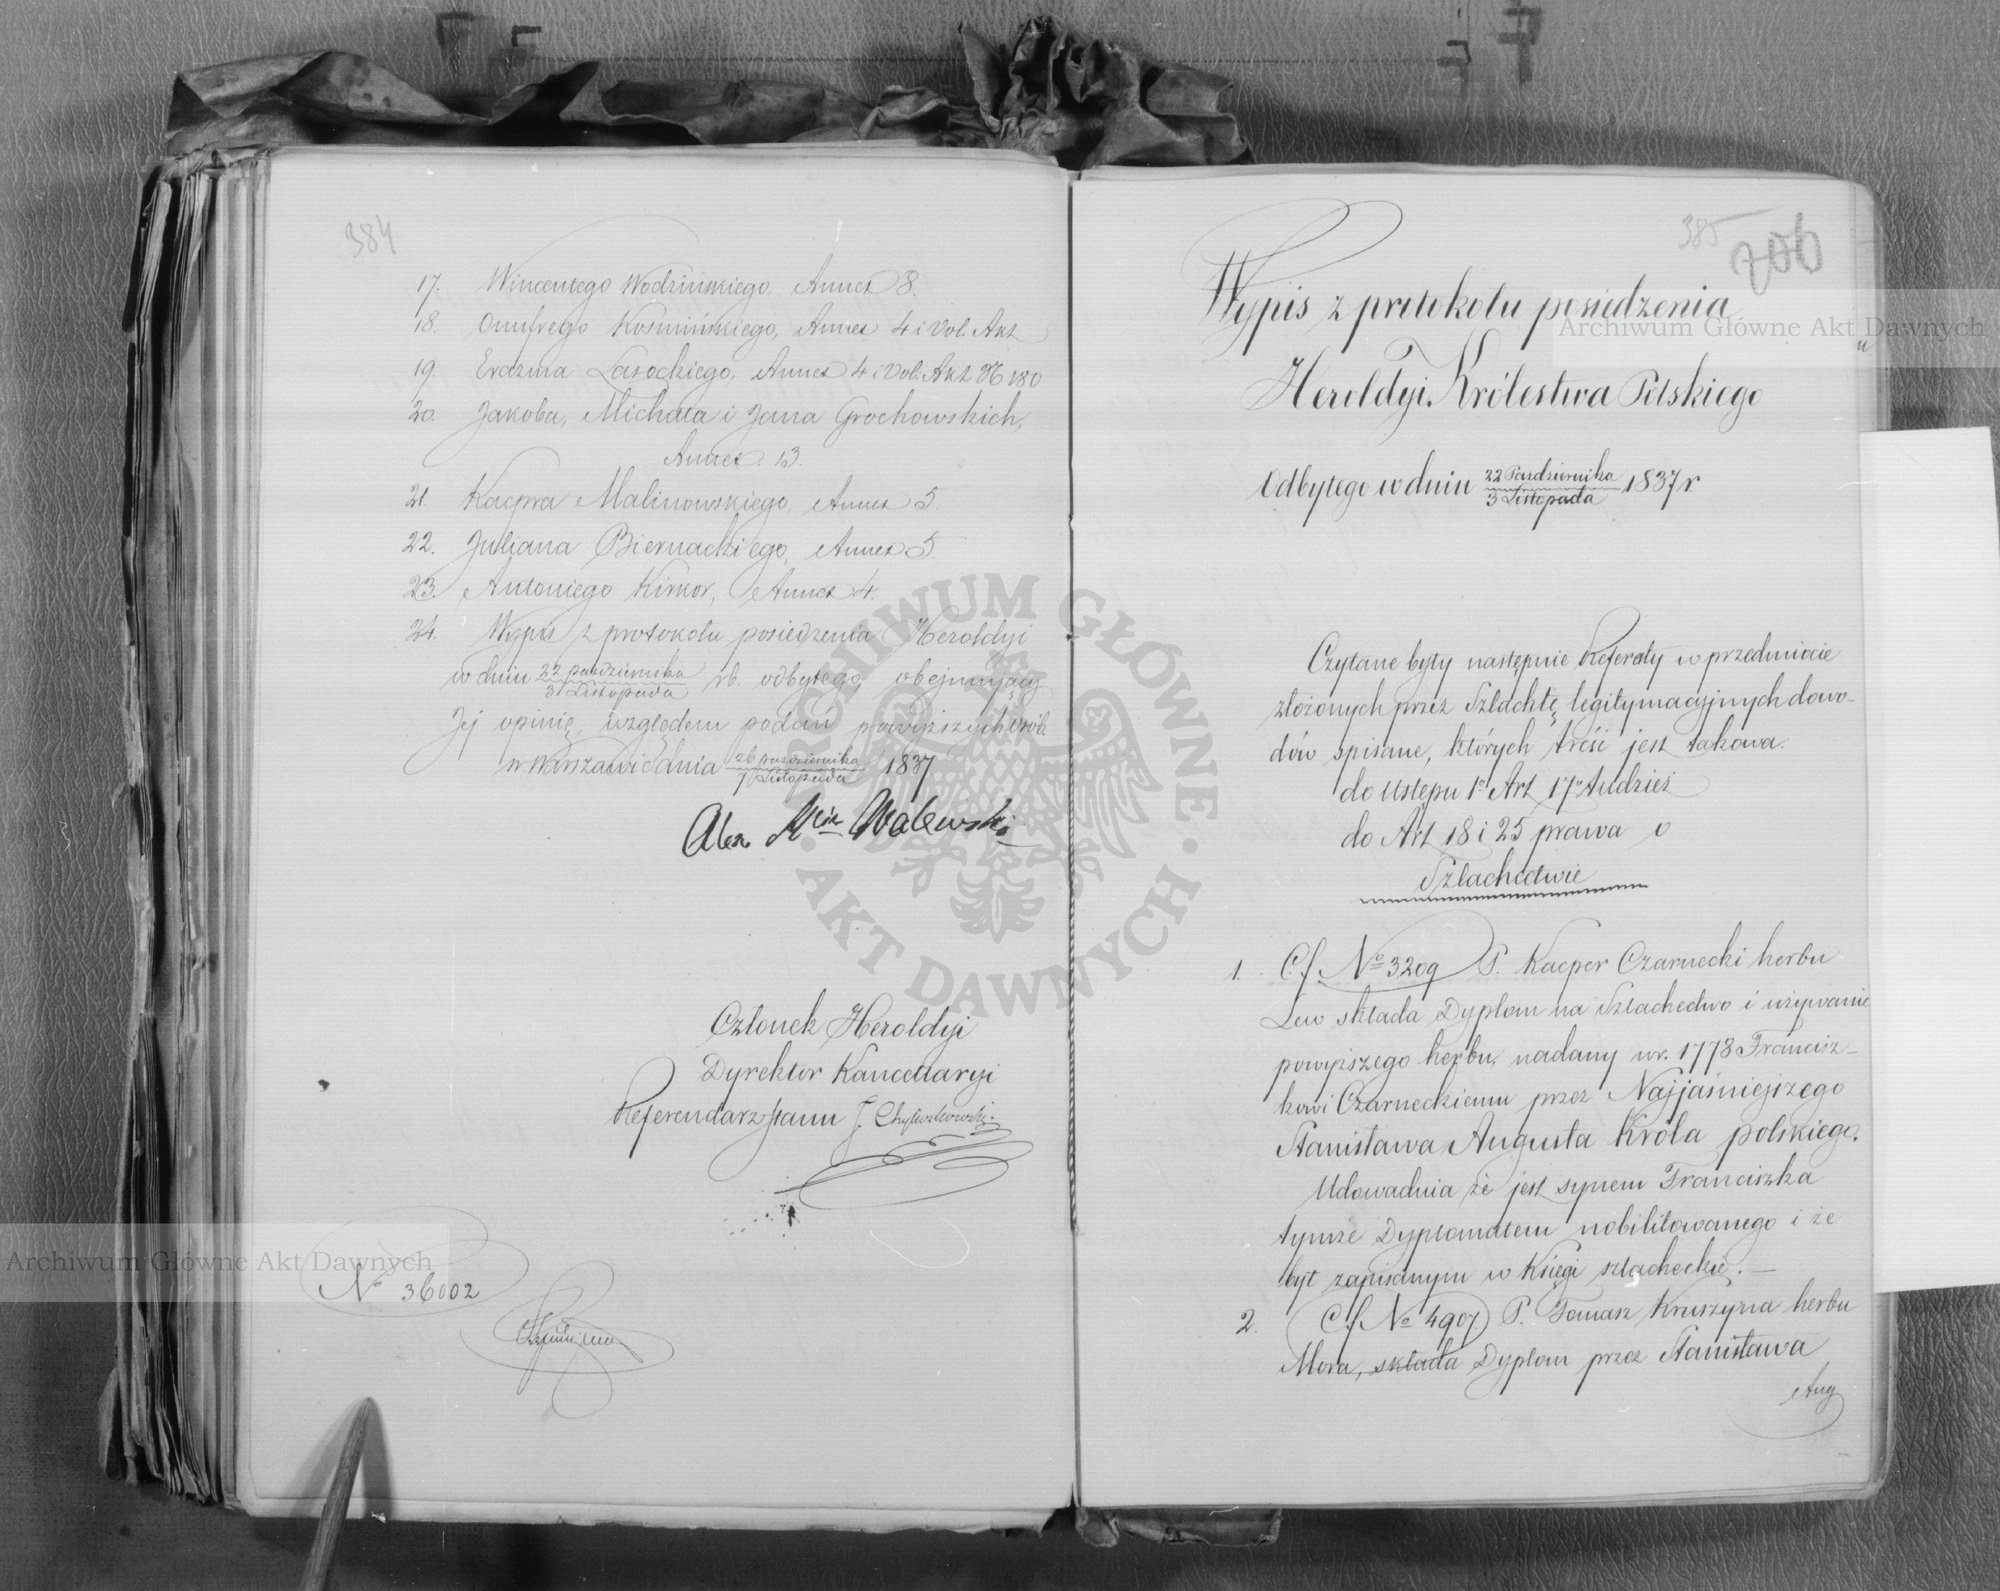 384
17. Wincentego Wodzińskiego, Annex 8.
18. Onufrego Kosmińskiego, Annex 4 i Vol. Akt
19. Erazma Lasockiego, Annex 4 i Vol. Akt N 180
20. Jakoba, Michała i Jana Grochowskich,
Annex. 13.
21. Kacpra Malinowskiego, Annex 5.
22. Juliana Biernackiego, Annex 5.
23. Antoniego Kirkor, Annex 4.
24. Wypis z protokołu posiedzenia Heroldyi
w dniu 22 października
3 Listopada rb. odbytego, obejmujący
Jej opinię, względem podań powyższych osób.
w Warszawie dnia 26 października
7 Listopada 1837
Alex Walewski
Członek Heroldyi
Dyrektor Kancellaryi
Referendarz Stanu J.
N 36002
385
206
Wypis z protokołu posiedzenia
Heroldyi Królestwa Polskiego
Odbytego w dniu 22 Października
3 Listopada 1837 r.
Czytane były następnie Referaty w przedmiocie
złożonych przez Szlachtę legitymacyjnych dowo-
dów spisane, których treść jest takowa:
do Ustępu 1o Art 17o tudzież
do Art 18 i 25 prawa o
Szlachectwie
1. C.f. No 3209 P. Kacper Czarnecki herbu
Lew składa Dyplom na Szlachectwo i używanie
powyższego herbu, nadany w r. 1778 Francisz-
kowi Czarneckiemu przez Najjaśniejszego
Stanisława Augusta Króla polskiego.
Udowadnia że jest synem Franciszka
tymże Dyplomatem nobilitowanego i że
był zapisanym w Księgi szlacheckie. —
2. C.f. No 4907. P. Tomasz Kruszyna herbu
Mora, składa Dyplom przez Stanisława
Aug
Archiwum Główne Akt Dawnych
ARCHIWUM GŁÓWNE
AKT DAWNYCH
Archiwum Główne Akt Dawnych